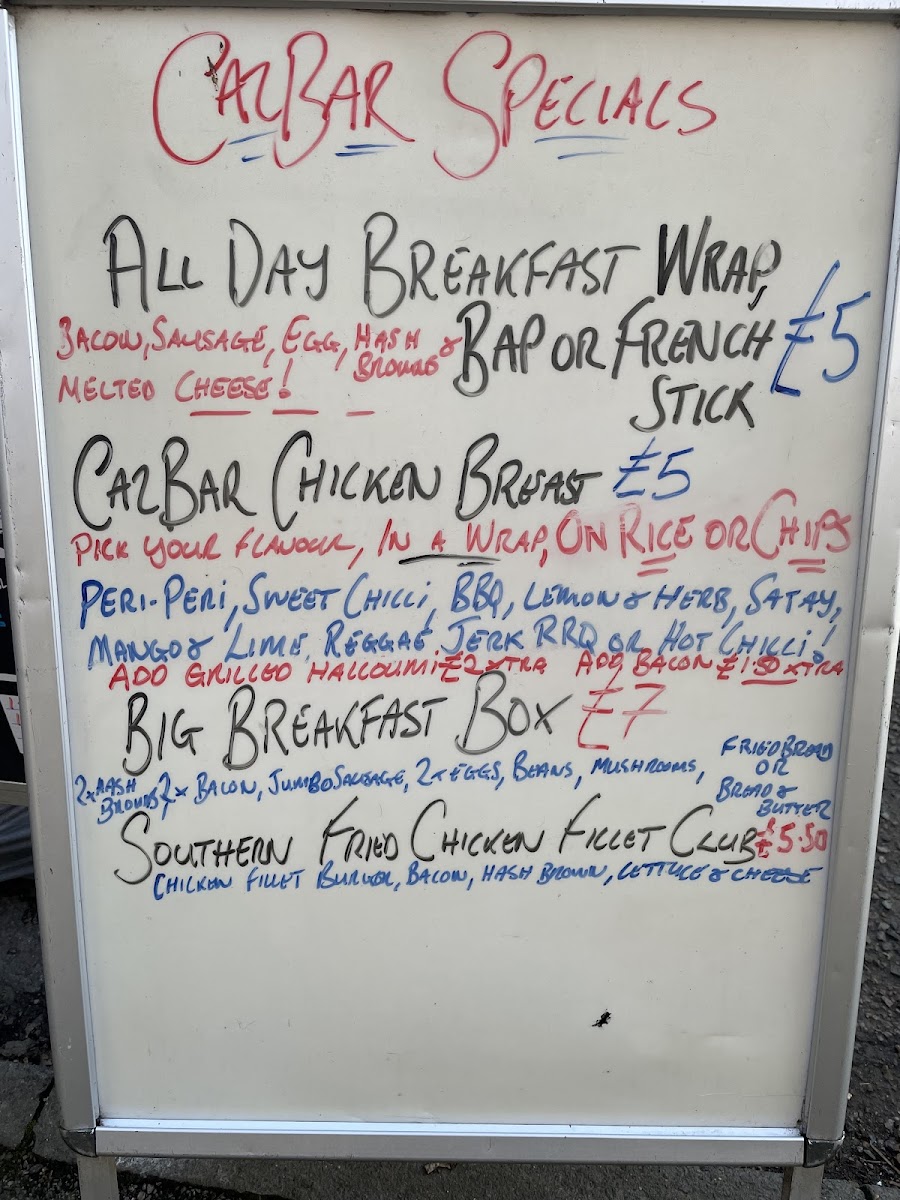 CAZBAR SPECIALS
ALL DAY BREAKFAST WRAP,
BAP OR FRENCH STICK £5
BACON, SAUSAGE, EGG, HASH BROWNS &
MELTED CHEESE!
CAZBAR CHICKEN BREAST £5
PICK YOUR FLAVOUR, IN A WRAP, ON RICE OR CHIPS
PERI-PERI, SWEET CHILLI, BBQ, LEMON & HERB, SATAY,
MANGO & LIME, REGGAE JERK BBQ OR HOT CHILLI!
ADD GRILLED HALLOUMI £2 XTRA ADD BACON £1.50 XTRA
BIG BREAKFAST BOX £7
2x HASH BROWNS, 2x BACON, JUMBO SAUSAGE, 2x EGGS, BEANS, MUSHROOMS, FRIED BREAD OR BREAD & BUTTER
SOUTHERN FRIED CHICKEN FILLET CLUB £5.50
CHICKEN FILLET BURGER, BACON, HASH BROWN, LETTUCE & CHEESE